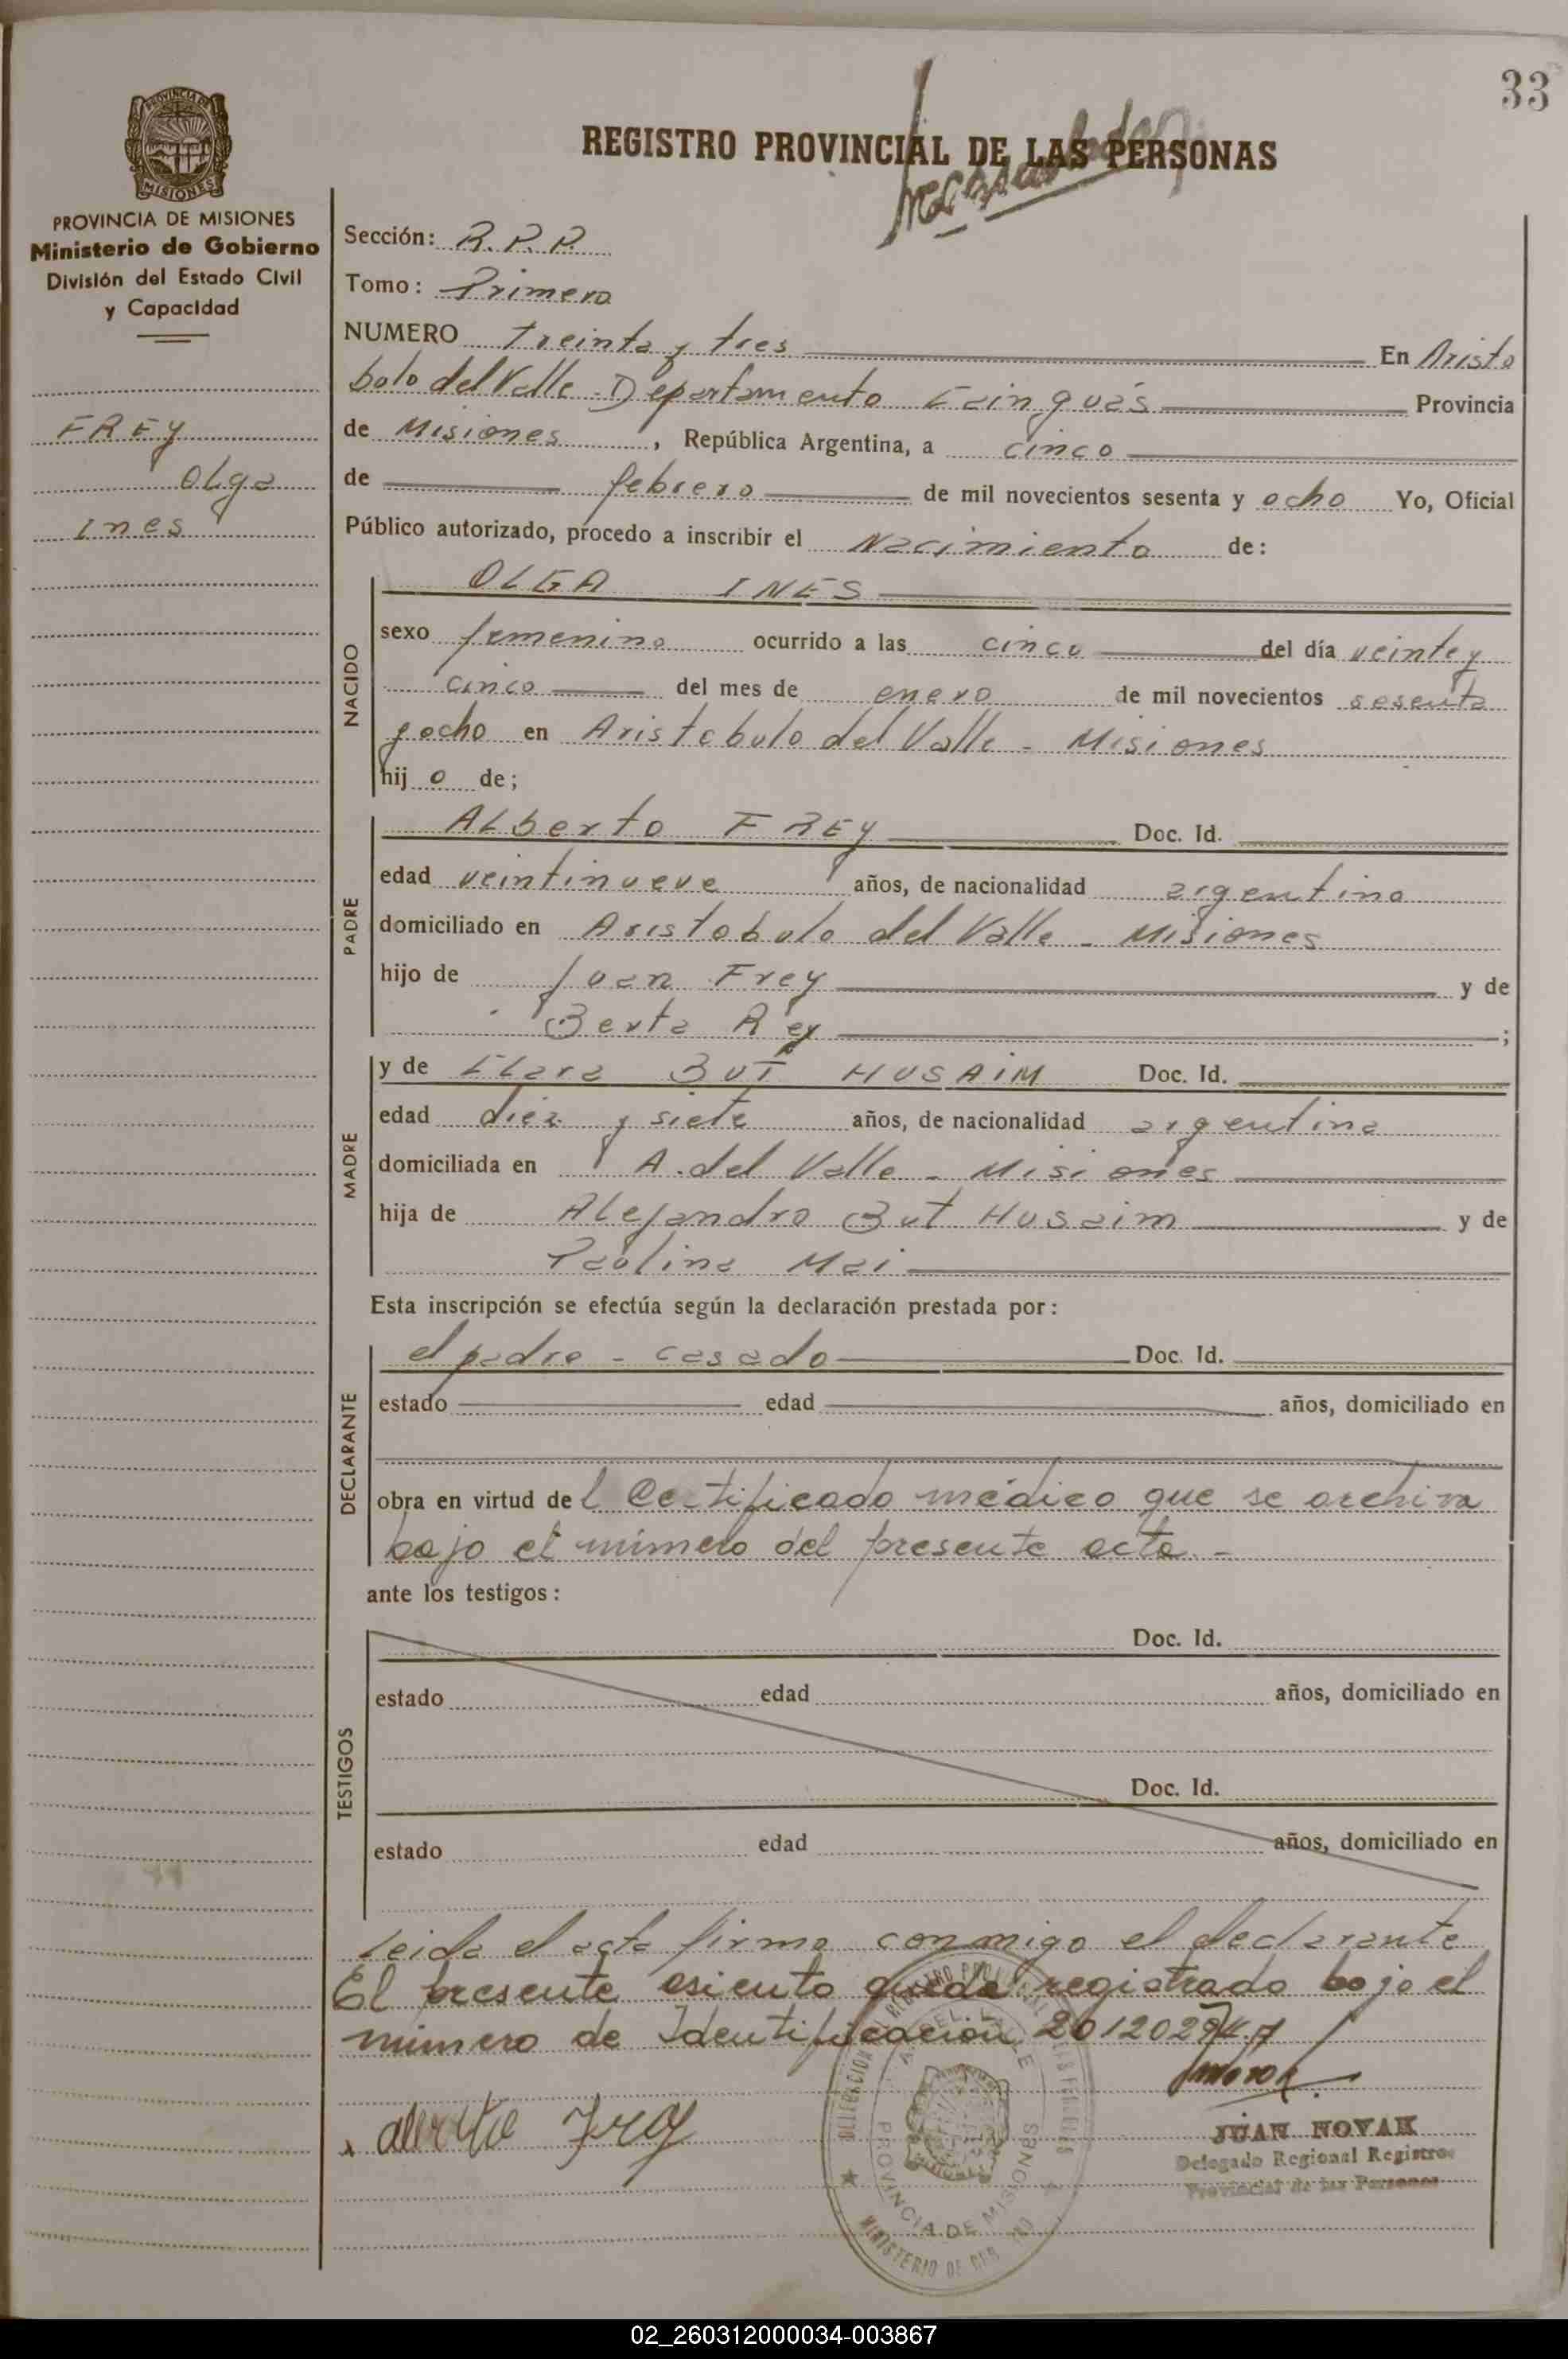 33
REGISTRO PROVINCIAL DE LAS PERSONAS
PROVINCIA DE MISIONES
Ministerio de Gobierno
División del Estado Civil
y Capacidad
FREY
Olga
Ines
Sección: R.P.P.
Tomo: Primero
NUMERO treinta y tres En Aristo
bolo del Valle - Departamento Cainguás Provincia
de Misiones, República Argentina, a cinco
de febrero de mil novecientos sesenta y ocho Yo, Oficial
Público autorizado, procedo a inscribir el Nacimiento de:
NACIDO
OLGA INES
sexo femenino ocurrido a las cinco del día veinte y
cinco del mes de enero de mil novecientos sesenta
y ocho en Aristobulo del Valle - Misiones
hij o de;
PADRE
Alberto FREY Doc. Id.
edad veintinueve años, de nacionalidad argentino
domiciliado en Aristobulo del Valle - Misiones
hijo de Juan Frey y de
Berta Rey ;
MADRE
y de Clara BUT HUSAIM Doc. Id.
edad diez y siete años, de nacionalidad argentina
domiciliada en A. del Valle - Misiones
hija de Alejandro But Husaim y de
Paulina Mai
Esta inscripción se efectúa según la declaración prestada por:
DECLARANTE
el padre - casado Doc. Id.
estado edad años, domiciliado en
obra en virtud del Certificado médico que se archiva
bajo el número del presente acta -
ante los testigos:
TESTIGOS
Doc. Id.
estado edad años, domiciliado en
Doc. Id.
estado edad años, domiciliado en
Leida el acta firma conmigo el declarante
El presente asiento queda registrado bajo el
número de Identificación
Alberto Frey
JUAN NOVAK
Delegado Regional Registro
Provincial de las Personas
PROVINCIA DE MISIONES
02_260312000034-003867